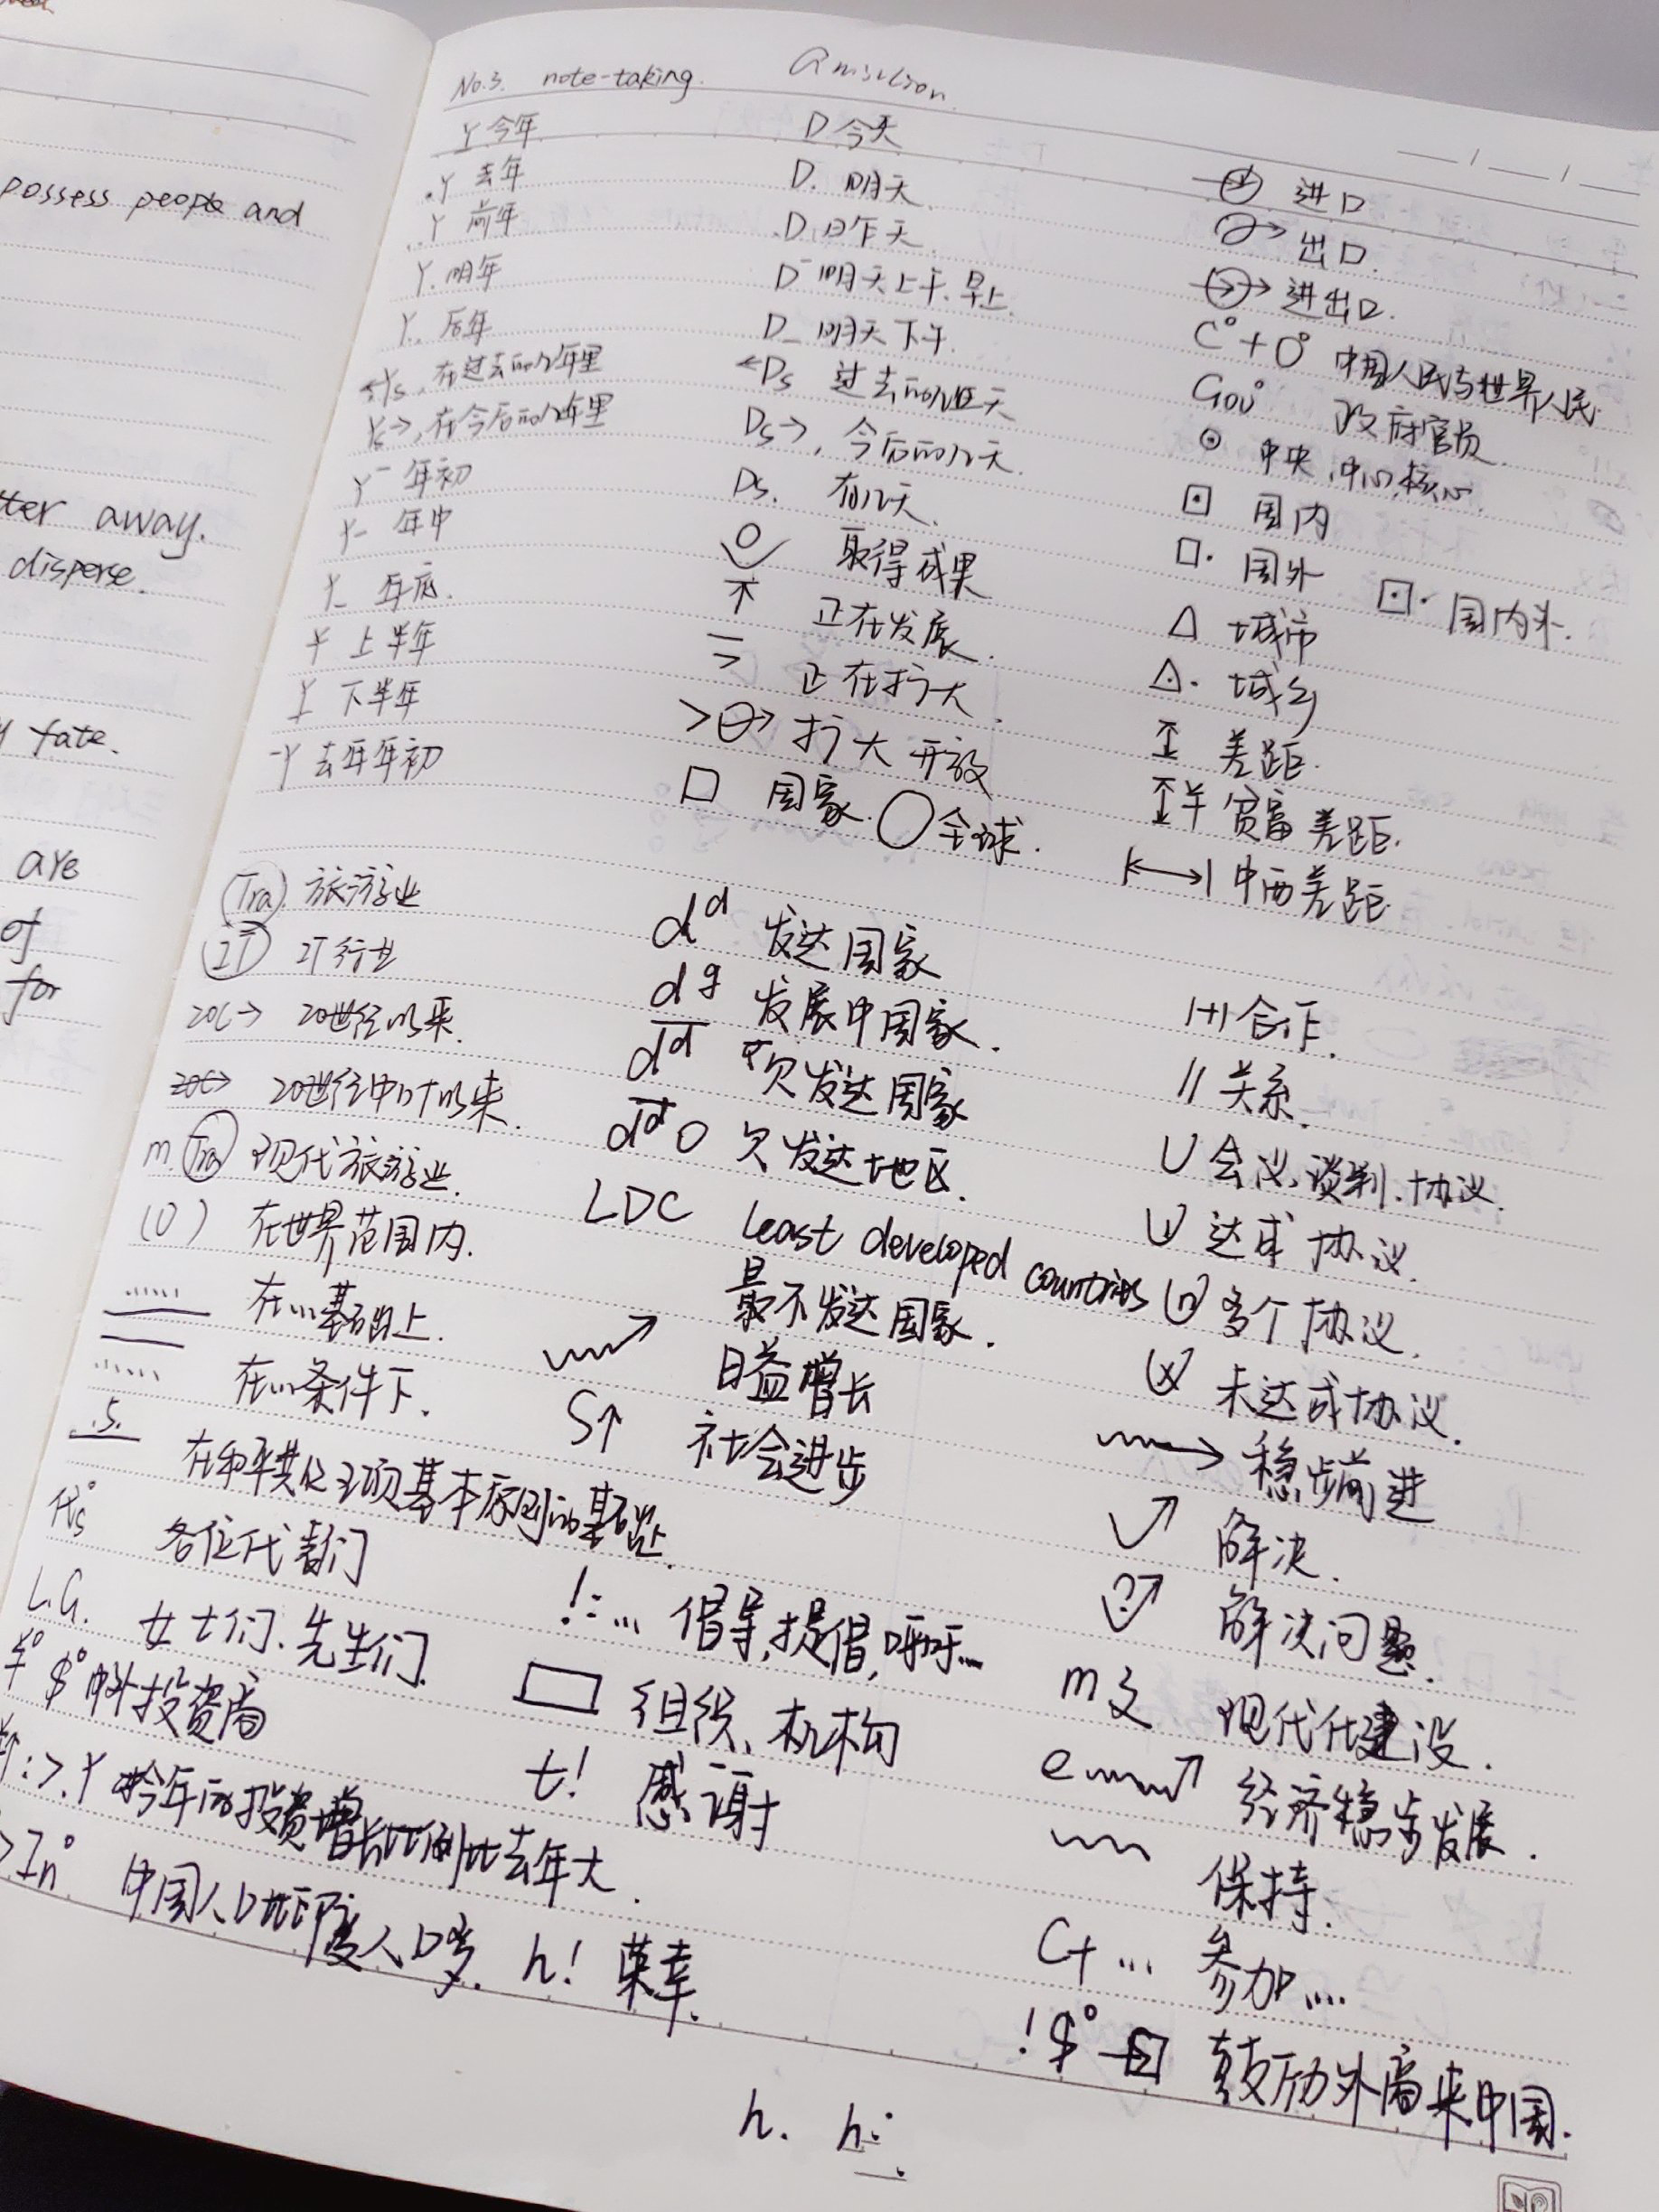 possess people and
tter away.
disperse.
fate.
are
of
for
No.3. note-taking.
Y 今年
.Y 去年
..Y 前年
Y. 明年
Y.. 后年
←Ys, 在过去的几年里
Ys→, 在今后的几年里
Y¯ 年初
Y- 年中
Y_ 年底.
上半年
下半年
¯Y 去年年初
Tra 旅游业
IT IT行业
20C→ 20世纪以来.
20C→ 20世纪中叶以来.
m. Tra 现代旅游业.
(O) 在世界范围内.
在...基础上.
在...条件下.
.5. 在和平共处五项基本原则的基础上.
代s° 各位代表们
L.G. 女士们、先生们.
¥° $° 中外投资商
: >.Y 今年的投资增长比例比去年大.
>In° 中国人口比印度人口多.
D 今天
D. 明天
.D 昨天.
D¯ 明天上午、早上.
D_ 明天下午.
←Ds 过去的几天
Ds→, 今后的几天.
Ds. 有几天.
取得成果
正在发展.
正在扩大.
扩大开放
□ 国家. ○ 全球.
d^d 发达国家
d^g 发展中国家.
欠发达国家
欠发达地区.
LDC Least developed countries
最不发达国家.
日益增长
S↑ 社会进步
!:... 倡导,提倡,呼吁...
▭ 组织、机构
t! 感谢
h! 荣幸.
进口
出口.
进出口.
C°+O° 中国人民与世界人民.
Gov° 政府官员.
⊙ 中央,中心,核心.
⊡ 国内
□· 国外 ⊡· 国内外.
△ 城市
城乡
差距.
贫富差距.
中西差距
合作.
// 关系.
U 会议、谈判、协议.
达成协议.
多个协议.
未达成协议.
稳步前进
解决.
解决问题.
m 现代化建设.
e 经济稳步发展.
保持.
C+ ... 参加....
!$°→ 鼓励外商来中国.
h. h.